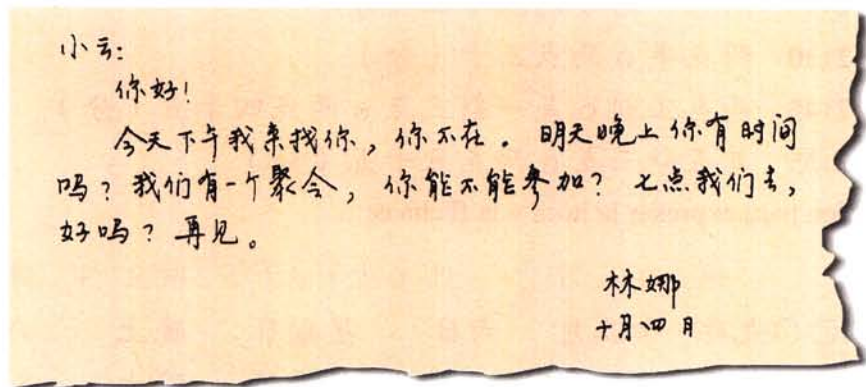 小云：
你好！
今天下午我来找你，你不在。明天晚上你有时间
吗？我们有一个聚会，你能不能参加？七点我们去，
好吗？再见。
林娜
十月四日